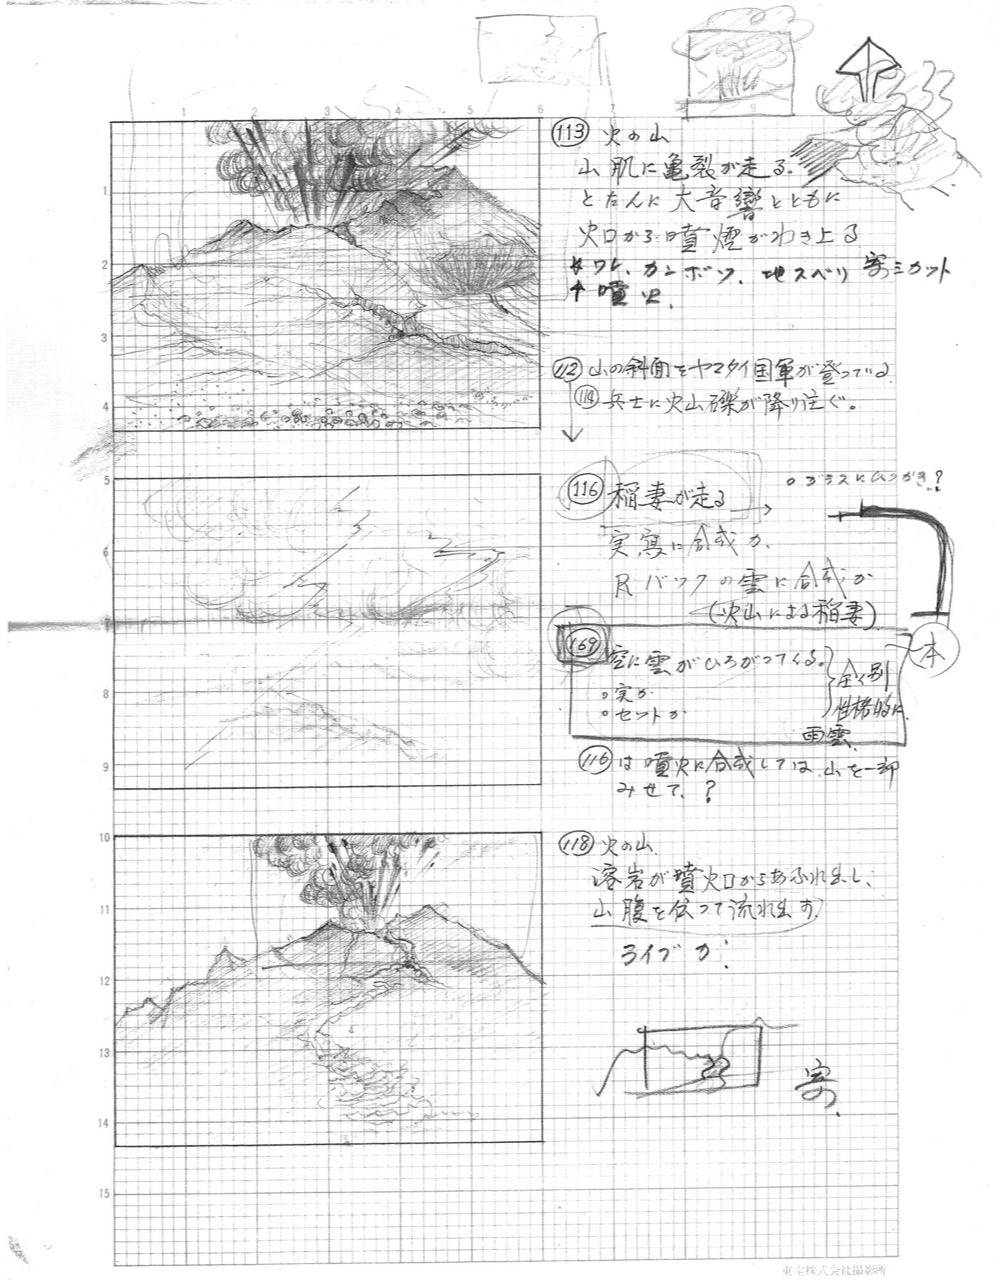 1 2 3 4 5 6
9
1
2
3
4
5
6
7
8
9
10
11
12
13
14
15
113 火の山
山肌に亀裂が走る。
とたんに大音響とともに
火口から噴煙がわき上る
ワレ、カンボツ、地スベリ 寄ミカット
噴火。
112 山の斜面をヤマタイ国軍が登っている
114 兵士に火山礫が降り注ぐ。
116 稲妻が走る
○ガラスにひっかき?
実写に合成か、
Rバックの雲に合成か
(火山による稲妻)
本
169 空に雲がひろがってくる。
○実か
○セットか
全く別
性格的に
雨雲
116 は噴火に合成しては、山を一部
みせて、?
118 火の山
溶岩が噴火口からあふれ出し、
山腹を伝って流れ出す
ライブか!
寄
東宝株式会社撮影所